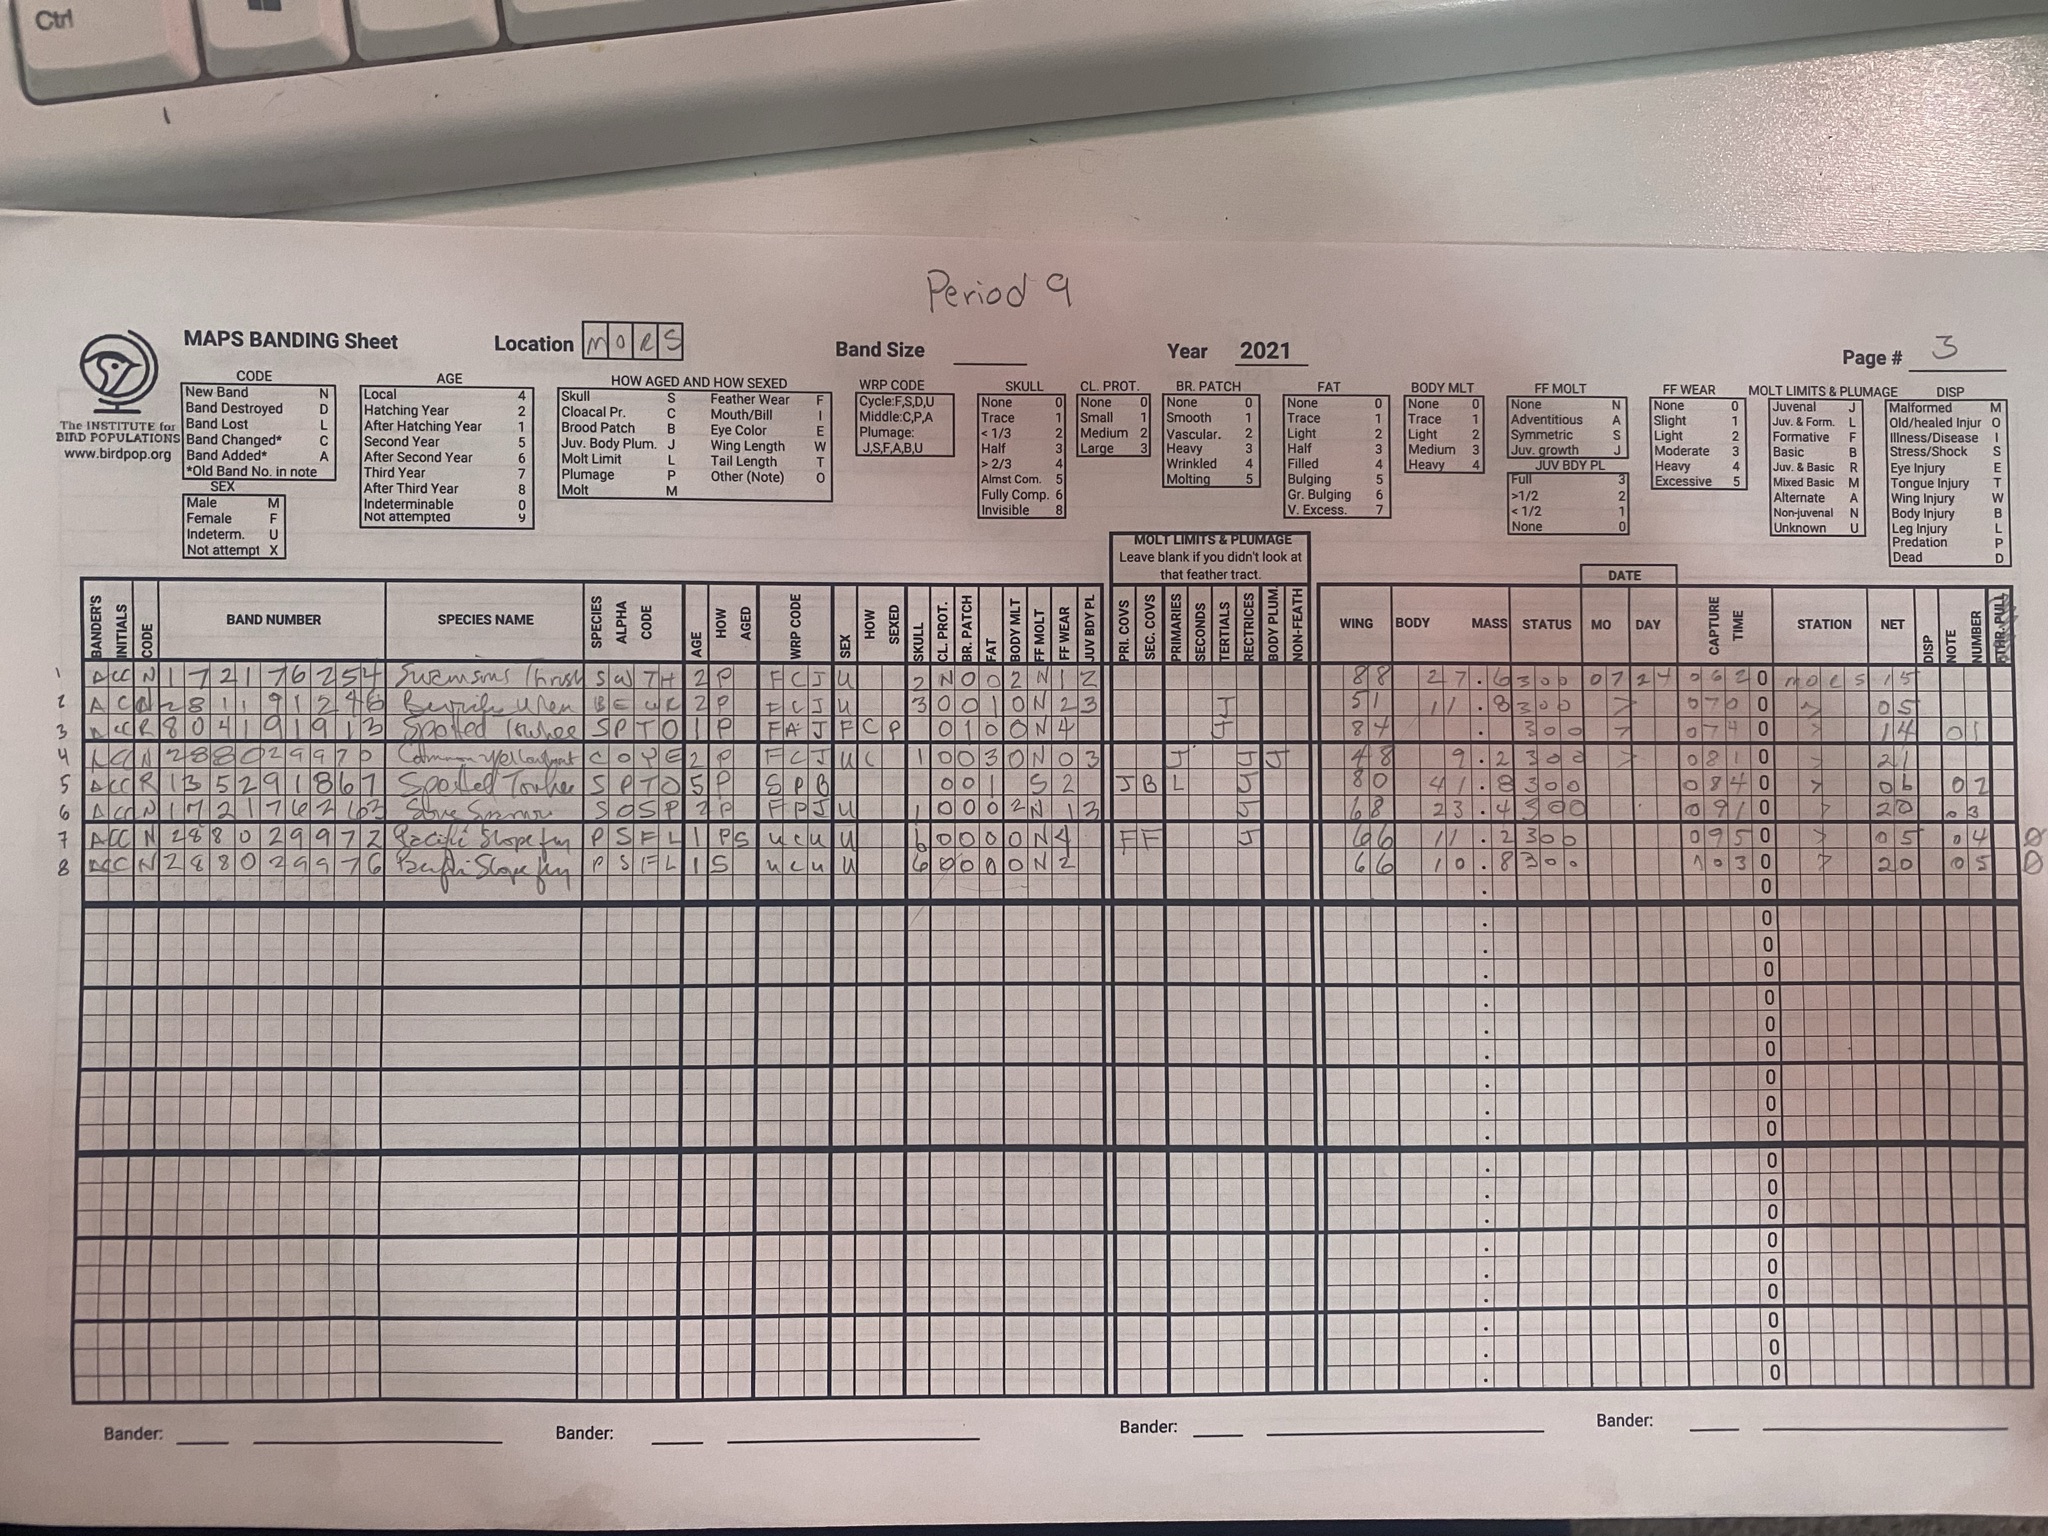 Ctrl
Period 9
MAPS BANDING Sheet
Location MORS
Band Size
Year 2021
Page # 3
The INSTITUTE for
BIRD POPULATIONS
www.birdpop.org
CODE
New Band N
Band Destroyed D
Band Lost L
Band Changed* C
Band Added* A
*Old Band No. in note
SEX
Male M
Female F
Indeterm. U
Not attempt X
AGE
Local 4
Hatching Year 2
After Hatching Year 1
Second Year 5
After Second Year 6
Third Year 7
After Third Year 8
Indeterminable 0
Not attempted 9
HOW AGED AND HOW SEXED
Skull S Feather Wear F
Cloacal Pr. C Mouth/Bill I
Brood Patch B Eye Color E
Juv. Body Plum. J Wing Length W
Molt Limit L Tail Length T
Plumage P Other (Note) O
Molt M
WRP CODE
Cycle:F,S,D,U
Middle:C,P,A
Plumage:
J,S,F,A,B,U
SKULL
None 0
Trace 1
< 1/3 2
Half 3
> 2/3 4
Almst Com. 5
Fully Comp. 6
Invisible 8
CL. PROT.
None 0
Small 1
Medium 2
Large 3
BR. PATCH
None 0
Smooth 1
Vascular. 2
Heavy 3
Wrinkled 4
Molting 5
FAT
None 0
Trace 1
Light 2
Half 3
Filled 4
Bulging 5
Gr. Bulging 6
V. Excess. 7
BODY MLT
None 0
Trace 1
Light 2
Medium 3
Heavy 4
FF MOLT
None N
Adventitious A
Symmetric S
Juv. growth J
JUV BDY PL
Full 3
>1/2 2
< 1/2 1
None 0
FF WEAR
None 0
Slight 1
Light 2
Moderate 3
Heavy 4
Excessive 5
MOLT LIMITS & PLUMAGE
Juvenal J
Juv. & Form. L
Formative F
Basic B
Juv. & Basic R
Mixed Basic M
Alternate A
Non-juvenal N
Unknown U
DISP
Malformed M
Old/healed Injur O
Illness/Disease I
Stress/Shock S
Eye Injury E
Tongue Injury T
Wing Injury W
Body Injury B
Leg Injury L
Predation P
Dead D
MOLT LIMITS & PLUMAGE
Leave blank if you didn't look at
that feather tract.
DATE
BANDER'S INITIALS CODE BAND NUMBER SPECIES NAME SPECIES ALPHA CODE AGE HOW AGED WRP CODE SEX HOW SEXED SKULL CL. PROT. BR. PATCH FAT BODY MLT FF MOLT FF WEAR JUV BDY PL PRI. COVS SEC. COVS PRIMARIES SECONDS TERTIALS RECTRICES BODY PLUM. NON-FEATH WING BODY MASS STATUS MO DAY CAPTURE TIME STATION NET DISP NOTE NUMBER
1 ACC N 172176254 Swainsons Thrush SWTH 2 P FCJ U 2 N 0 0 2 N 1 2 88 27.6 300 07 24 062 0 MORS 15
2 AC N 281191246 Wren BEWR 2 P FCJ U 3 0 0 1 0 N 2 3 J 51 11.8 300 070 0 05
3 ACC R 804191913 Spotted Towhee SPTO 1 P FAJ F CP 0 1 0 0 N 4 J 84 300 074 0 14 01
4 ACC N 288029970 Common Yellowthroat COYE 2 P FCJ U C 1 0 0 3 0 N 0 3 J J J 48 9.2 300 081 0 21
5 ACC R 135291867 Spotted Towhee SPTO 5 P SPB 0 0 1 S 2 J B L J 80 41.8 300 084 0 06 02
6 ACC N 172176263 Song Sparrow SOSP 2 P FPJ U 1 0 0 0 2 N 1 3 J 68 23.4 300 091 0 20 03
7 ACC N 288029972 Pacific Slope fly PSFL 1 PS UCU U 6 0 0 0 0 N 4 F F J 66 11.2 300 095 0 05 04
8 ACC N 288029976 Slope fly PSFL 1 S UCU U 6 0 0 0 0 N 2 66 10.8 300 103 0 20 05
0
0
0
0
0
0
0
0
0
0
0
0
0
0
0
0
0
0
0
Bander: Bander: Bander: Bander: